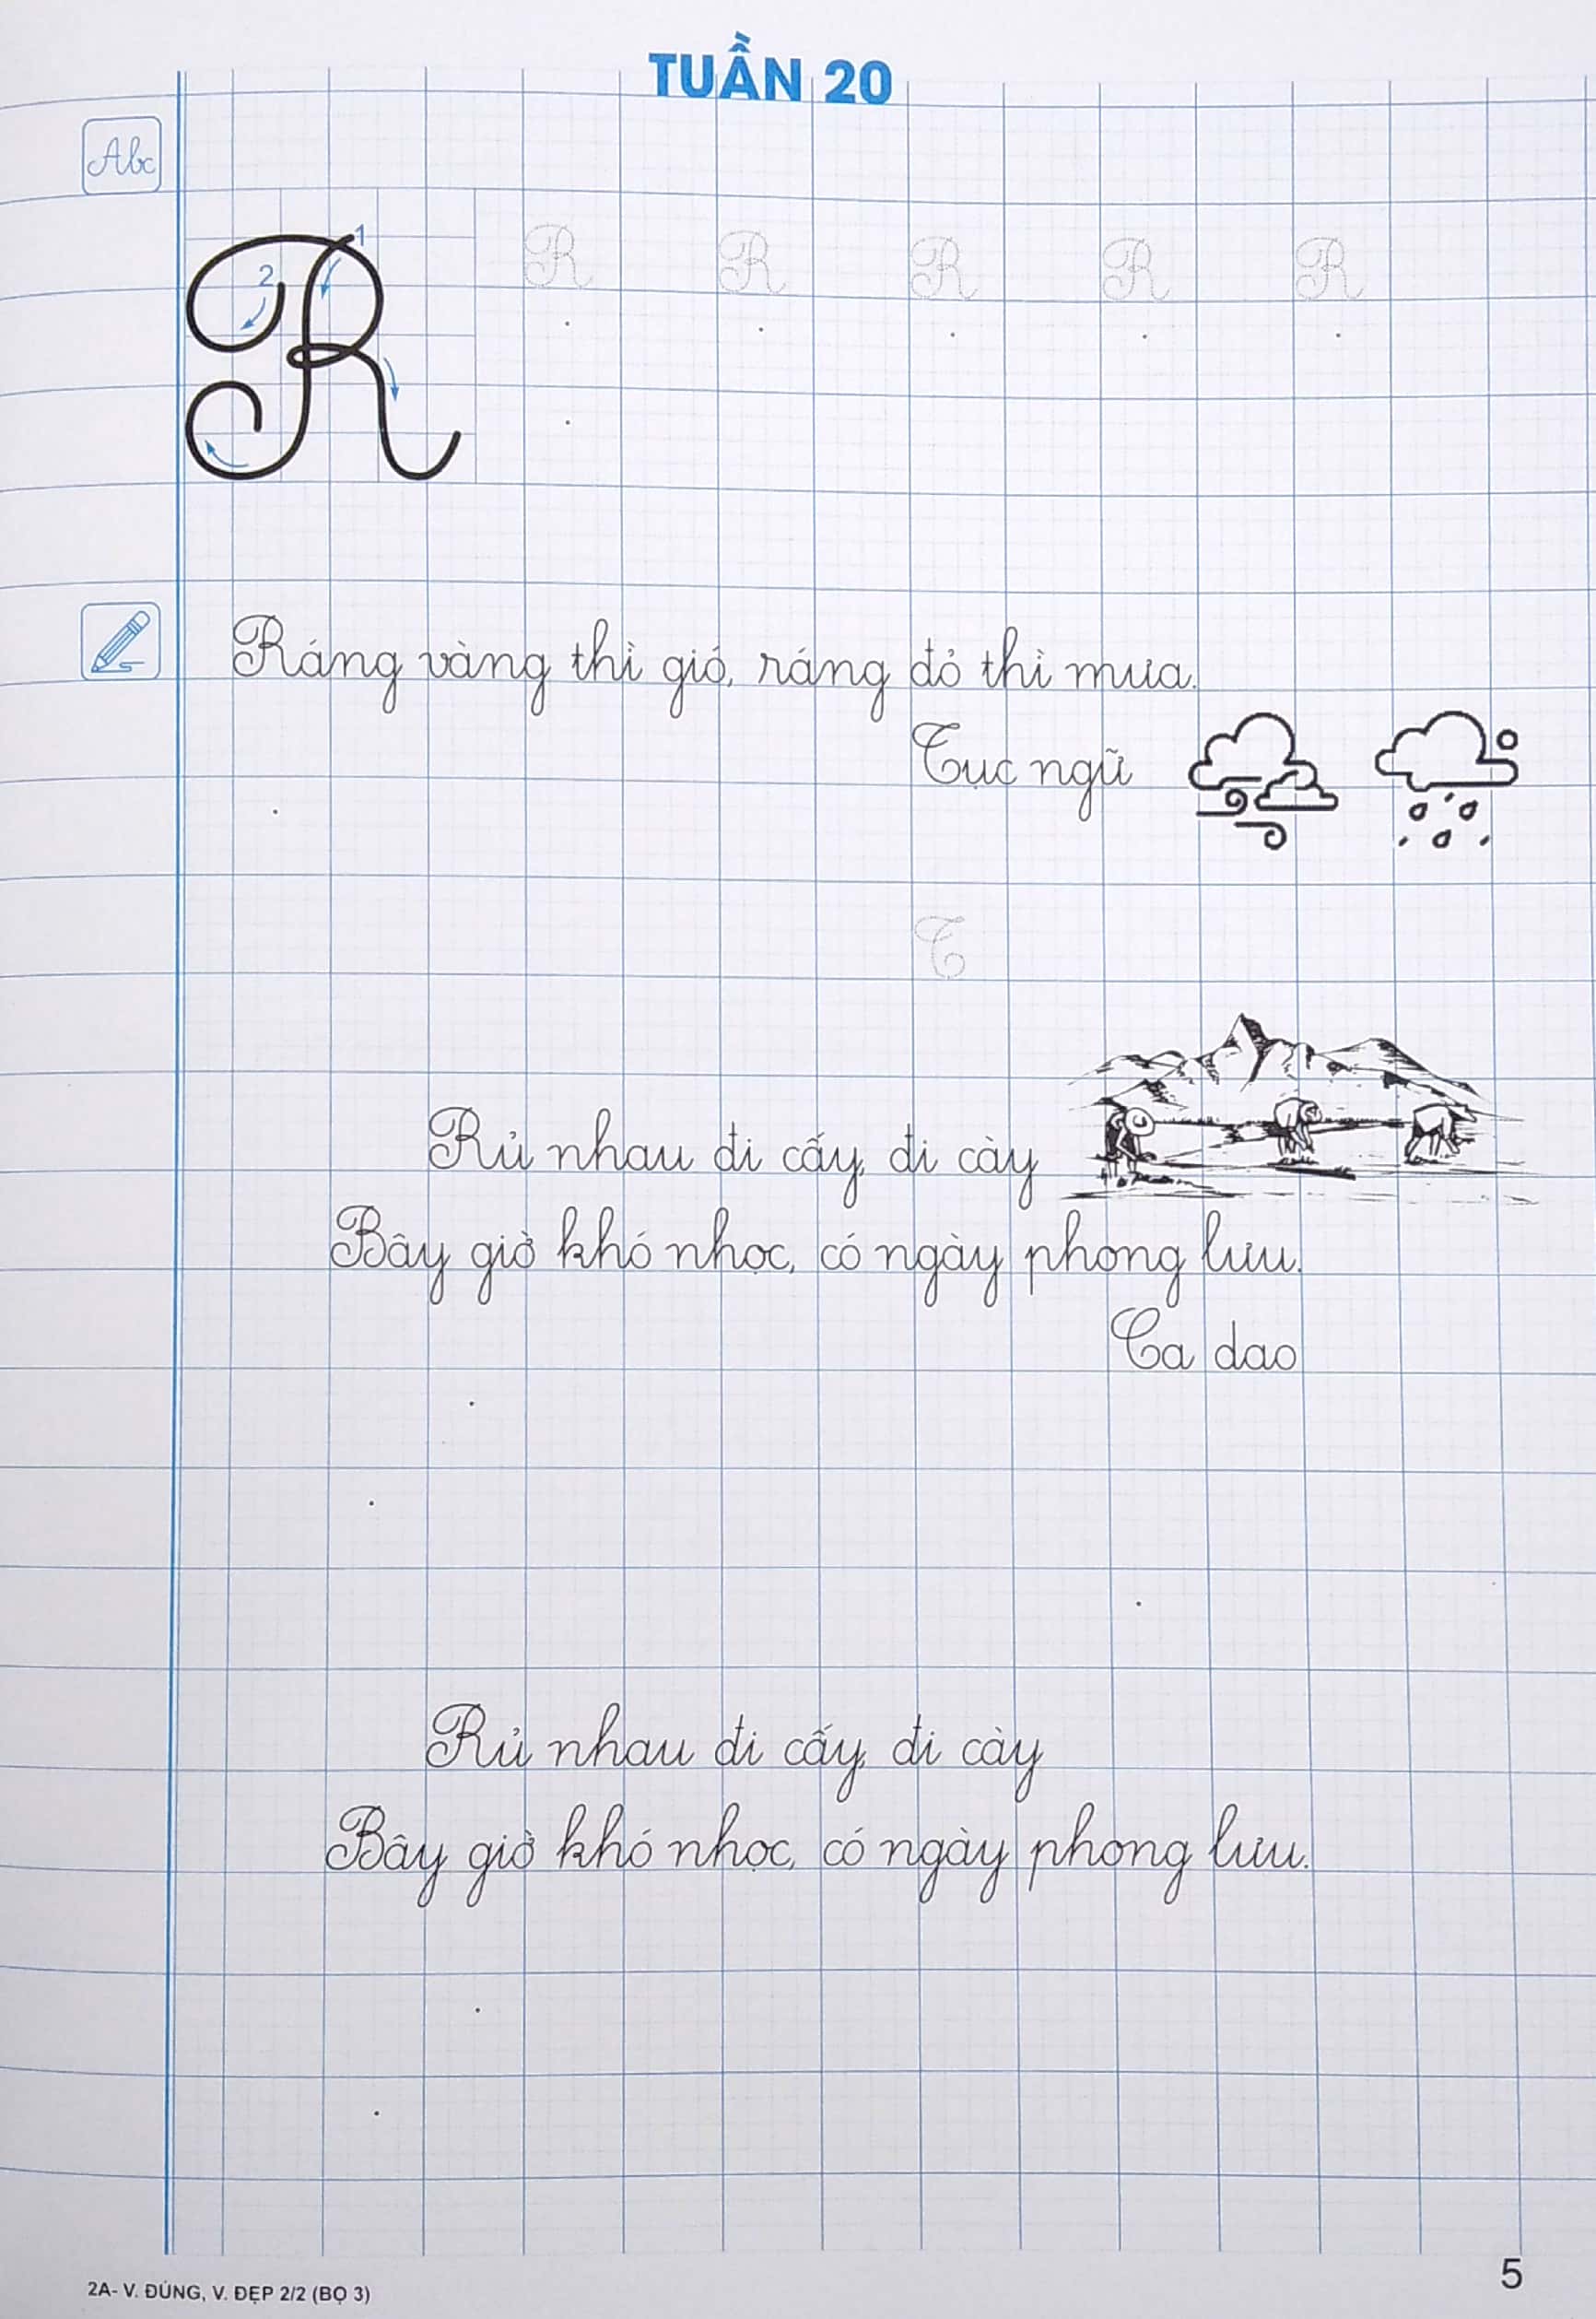 TUẦN 20
Abc
1
2
R
R R R R R
Ráng vàng thì gió, ráng đỏ thì mưa.
Tục ngữ
T
Rủ nhau đi cấy, đi cày
Bây giờ khó nhọc, có ngày phong lưu.
Ca dao
Rủ nhau đi cấy, đi cày
Bây giờ khó nhọc, có ngày phong lưu.
2A- V. ĐÚNG, V. ĐẸP 2/2 (BỌ 3)
5